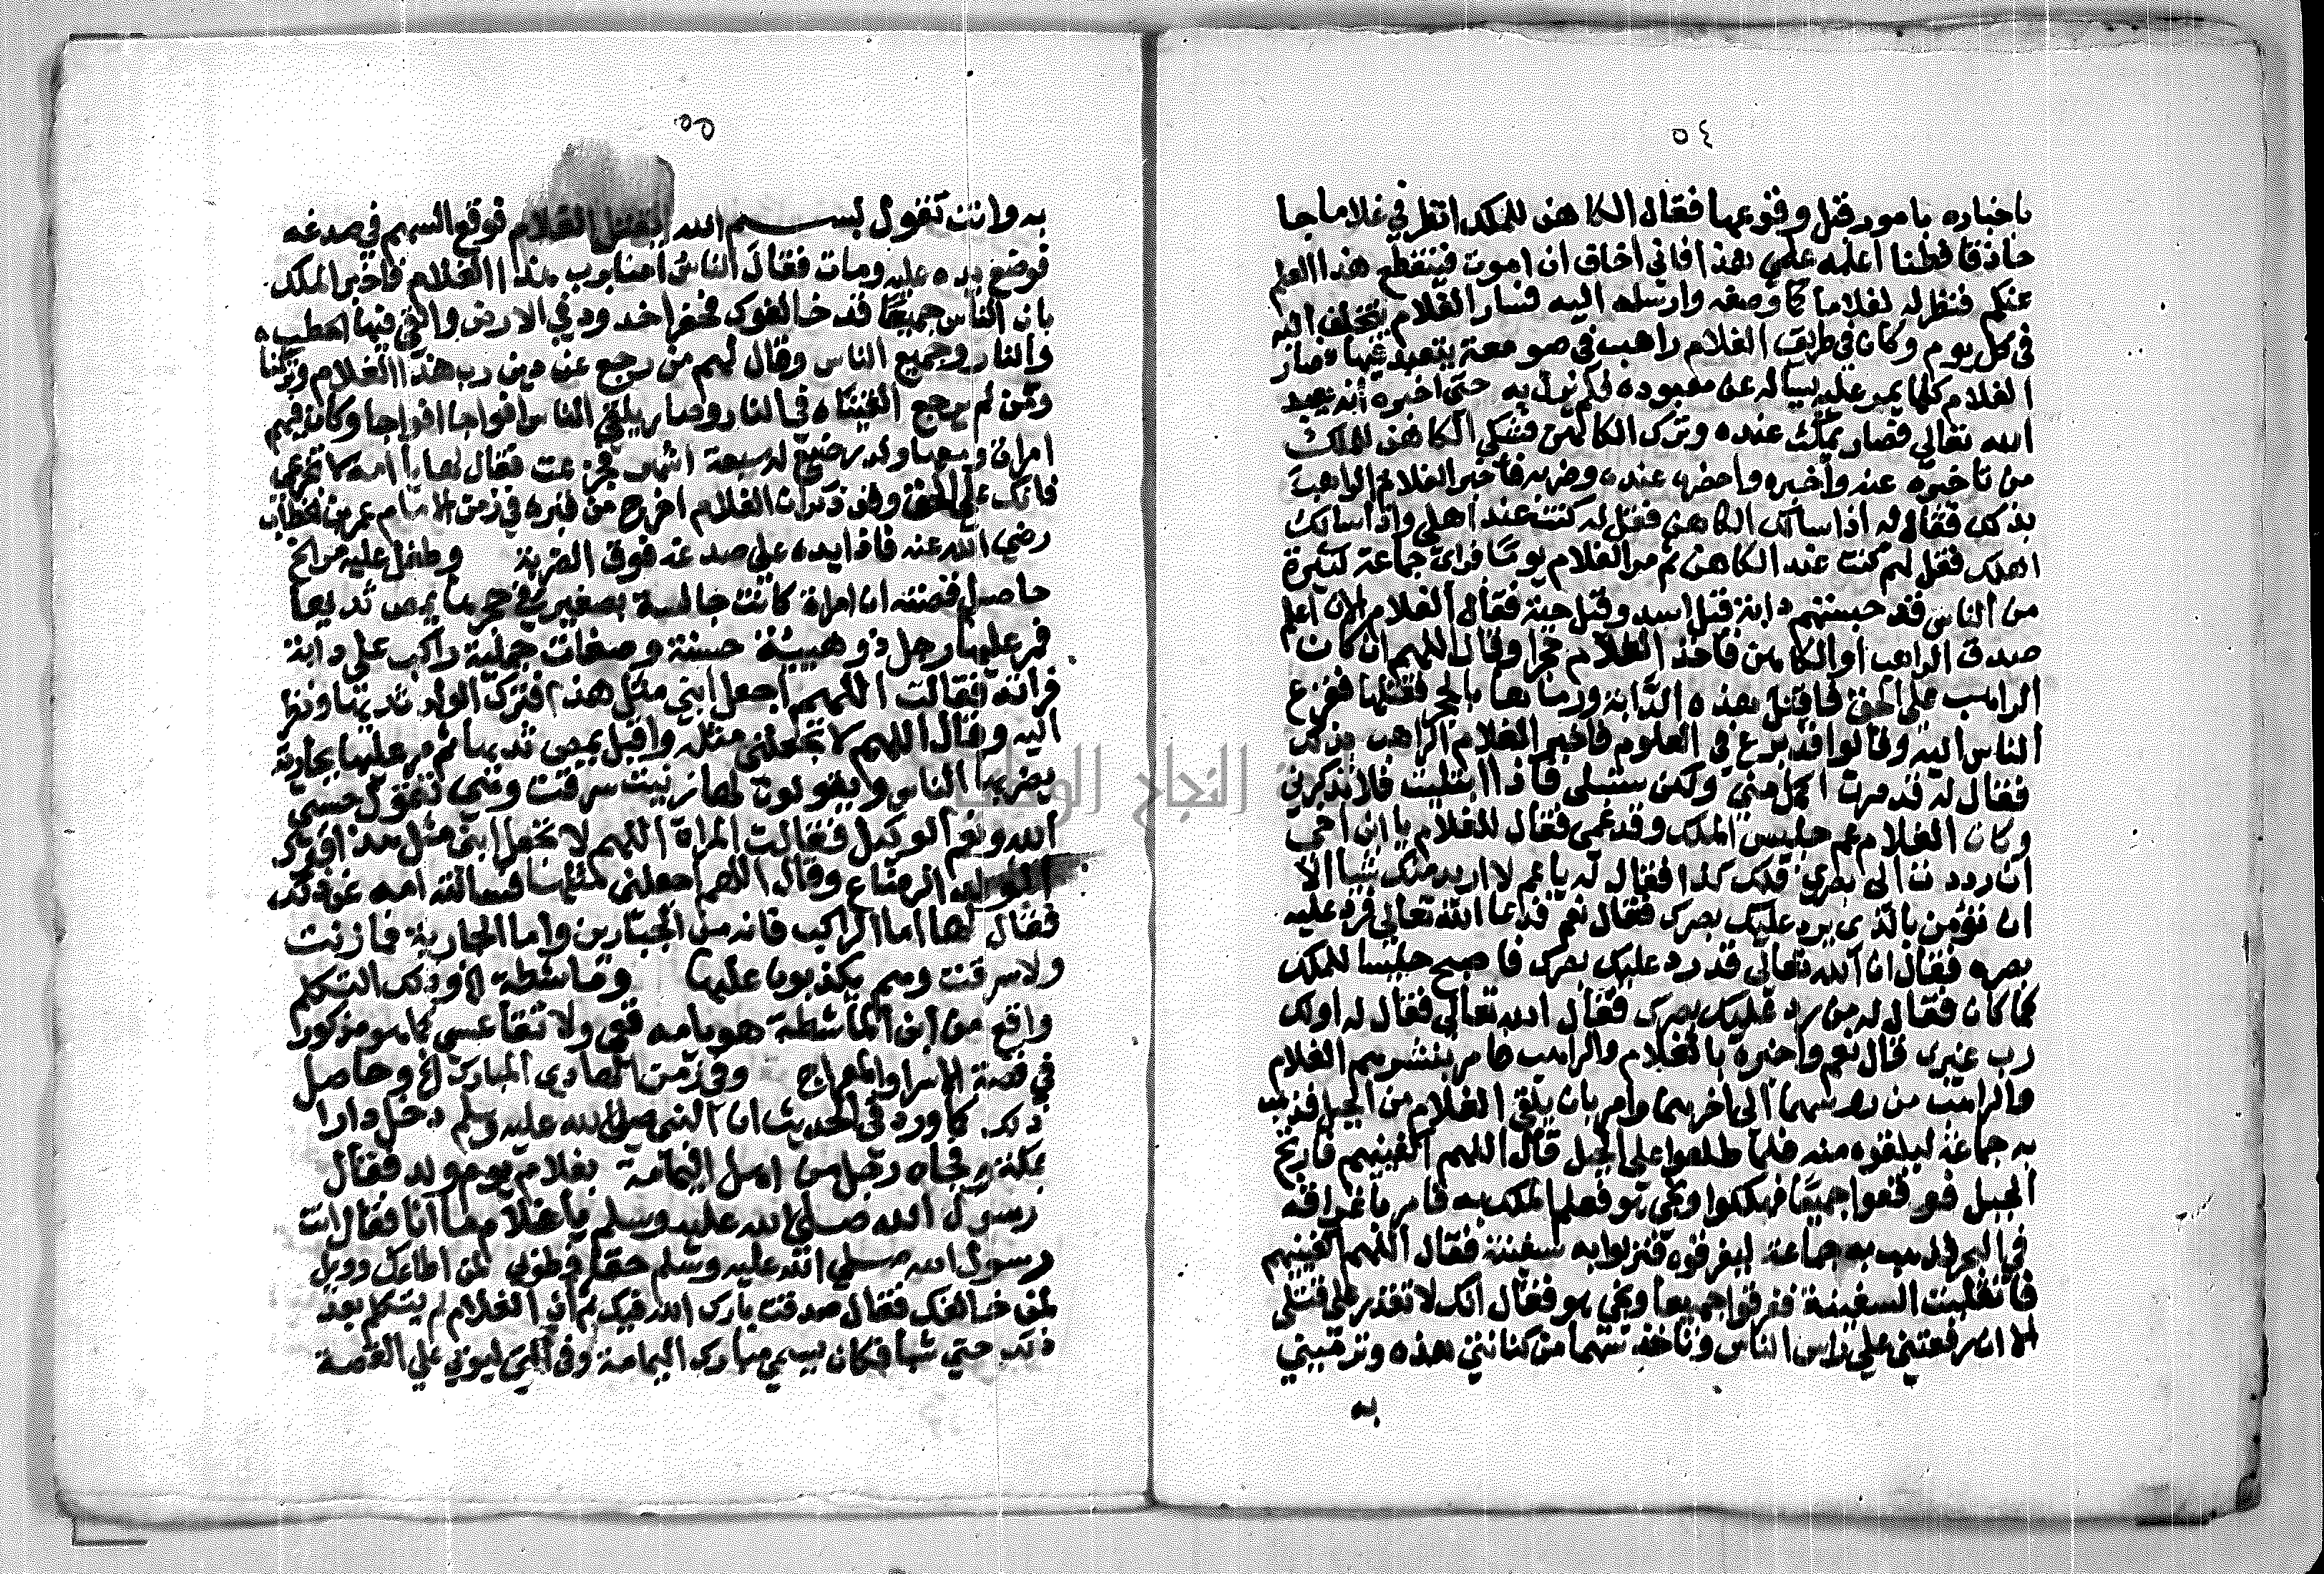 ٥٤
باخباره بامور قبل وقوعها فقال الكاهن للملك انظر لي غلاما جا
حاذقا فطنا اعلمه علمي هذا فاني اخاف ان اموت فينقطع هذا العلم
عنكم فنظر له غلاما كما وصفه وارسله اليه فسار الغلام يتخلف اليه
في كل يوم وكان في طريق الغلام راهب في صومعة يتعبد فيها فصار
الغلام كلما يمر عليه يساله عن معبوده فلم نزل به حتى اخبره انه يعبد
الله تعالى فصار يمكث عنده وترك الكاهن فشكى الكاهن للملك
من تاخيره عنه واخبره واحضره عنده وضربه فاخبر الغلام الراهب
بذلك فقال له اذا سالك الكاهن فقل له كنت عند اهلي واذا سالك
اهلك فقل لهم كنت عند الكاهن ثم مر الغلام يوما فراى جماعة كثيرة
من الناس قد حبستهم دابة قيل اسد وقيل حية فقال الغلام الان اعلم
صدق الراهب او الكاهن فاخذ الغلام حجرا وقال اللهم ان كان
الراهب على الحق فاقتل هذه الدابة ورماها بالحجر فقتلها ففزع
الناس اليه وقالوا قد برع في العلوم فاخبر الغلام الراهب بذلك
فقال له قد صرت اكمل مني ولكن ستبتلى فاذا ابتليت فلا تذكرني
وكان الغلام عم جليس الملك وقد عمى فقال للغلام يا ابن اخي
ان رددت الى بصري فلك كذا فقال له يا عم لا اريد منك شيا الا
ان تؤمن بالذي يرد عليك بصرك فقال نعم فدعا الله تعالى فرد عليه
بصره فقال ان الله تعالى قد رد عليك بصرك فاصبح جليسا للملك
كما كان فقال له من رد عليك بصرك فقال الله تعالى فقال له اولك
رب غيري قال نعم واخبره بالغلام والراهب فامر بنشرهم الغلام
والراهب من روسهما الى اخرهما وامر بان يلقى الغلام من الجبل فذهب
به جماعة ليلقوه منه فلما طلعوا على الجبل قال اللهم اكفينهم فارتج
الجبل فوقعوا جميعا فهلكوا ونجي هو فعلم الملك به فامر باغراقه
في البحر فذهب به جماعة ليغرقوه فنزلوا به سفينة فقال اللهم اكفينهم
فانقلبت السفينة فغرقوا جميعا ونجي هو فقال انك لا تقدر على قتلى
الا ان رفعتني على راس الناس وتاخذ سهما من كنانتي هذه وترميني
به
٥٥
به وانت تقول بسم الله اقتل الغلام فوقع السهم في صدغه
فوضع يده عليه ومات فقال الناس امنا برب هذا الغلام فاخبر الملك
بان الناس جميعا قد خالفوك فحفر اخدود في الارض والقى فيها الحطب
والنار وجميع الناس وقال لهم من رجع عن دين رب هذا الغلام وتركنا
ومن لم يرجع القيناه في النار وصار يلقي الناس افواجا افواجا وكان فيهم
امراة ومعها ولد رضيع له سبعة اشهر فجزعت فقال لها يا امه لا تجزعي
فانك على الحق وقد ذكر ان الغلام اخرج من قبره في زمن الامام عمر بن الخطاب
رضي الله عنه فاذا يده على صدغه فوق الضربة وطفل عليه مر الخ
حاصل قصته ان امراة كانت جالسة بصغير في حجرها يمص ثديها
فمر عليها رجل ذو هيبة حسنة وصفات جميلة راكب على دابة
فراته فقالت اللهم اجعل ابني مثل هذا فترك الولد ثديها ونظر
اليه وقال اللهم لا تجعلني مثله واقبل يمص ثديها ثم مر عليها بجارية
يضربها الناس ويقولون لها زنيت سرقت وهي تقول حسبي
الله ونعم الوكيل فقالت المراة اللهم لا تجعل ابني مثل هذا فترك
الولد الرضاع وقال اللهم اجعلني مثلها فسالته امه عن ذلك
فقال لها اما الراكب فانه من الجبارين واما الجارية فما زنت
ولا سرقت وهم يكذبون عليها وماشطة الخ وذلك التكلم
واقع من ابن الماشطة هو يا امه قعي ولا تقاعسي كما هو مذكور
في قصة الاسرا والمعراج وفي زمن الهادي المبارك الخ وحاصل
ذلك كما ورد في الحديث ان النبي صلى الله عليه وسلم دخل دارا
بمكة فجاه رجل من اهل اليمامة بغلام يوم ولد فقال
رسول الله صلى الله عليه وسلم يا غلام من انا فقال انت
رسول الله صلى الله عليه وسلم حقا فطوبى لمن اطاعك وويل
لمن خالفك فقال صدقت بارك الله فيك ثم ان الغلام لم يتكلم بعد
ذلك حتى شب فكان يسمي مبارك اليمامة وفي القصة